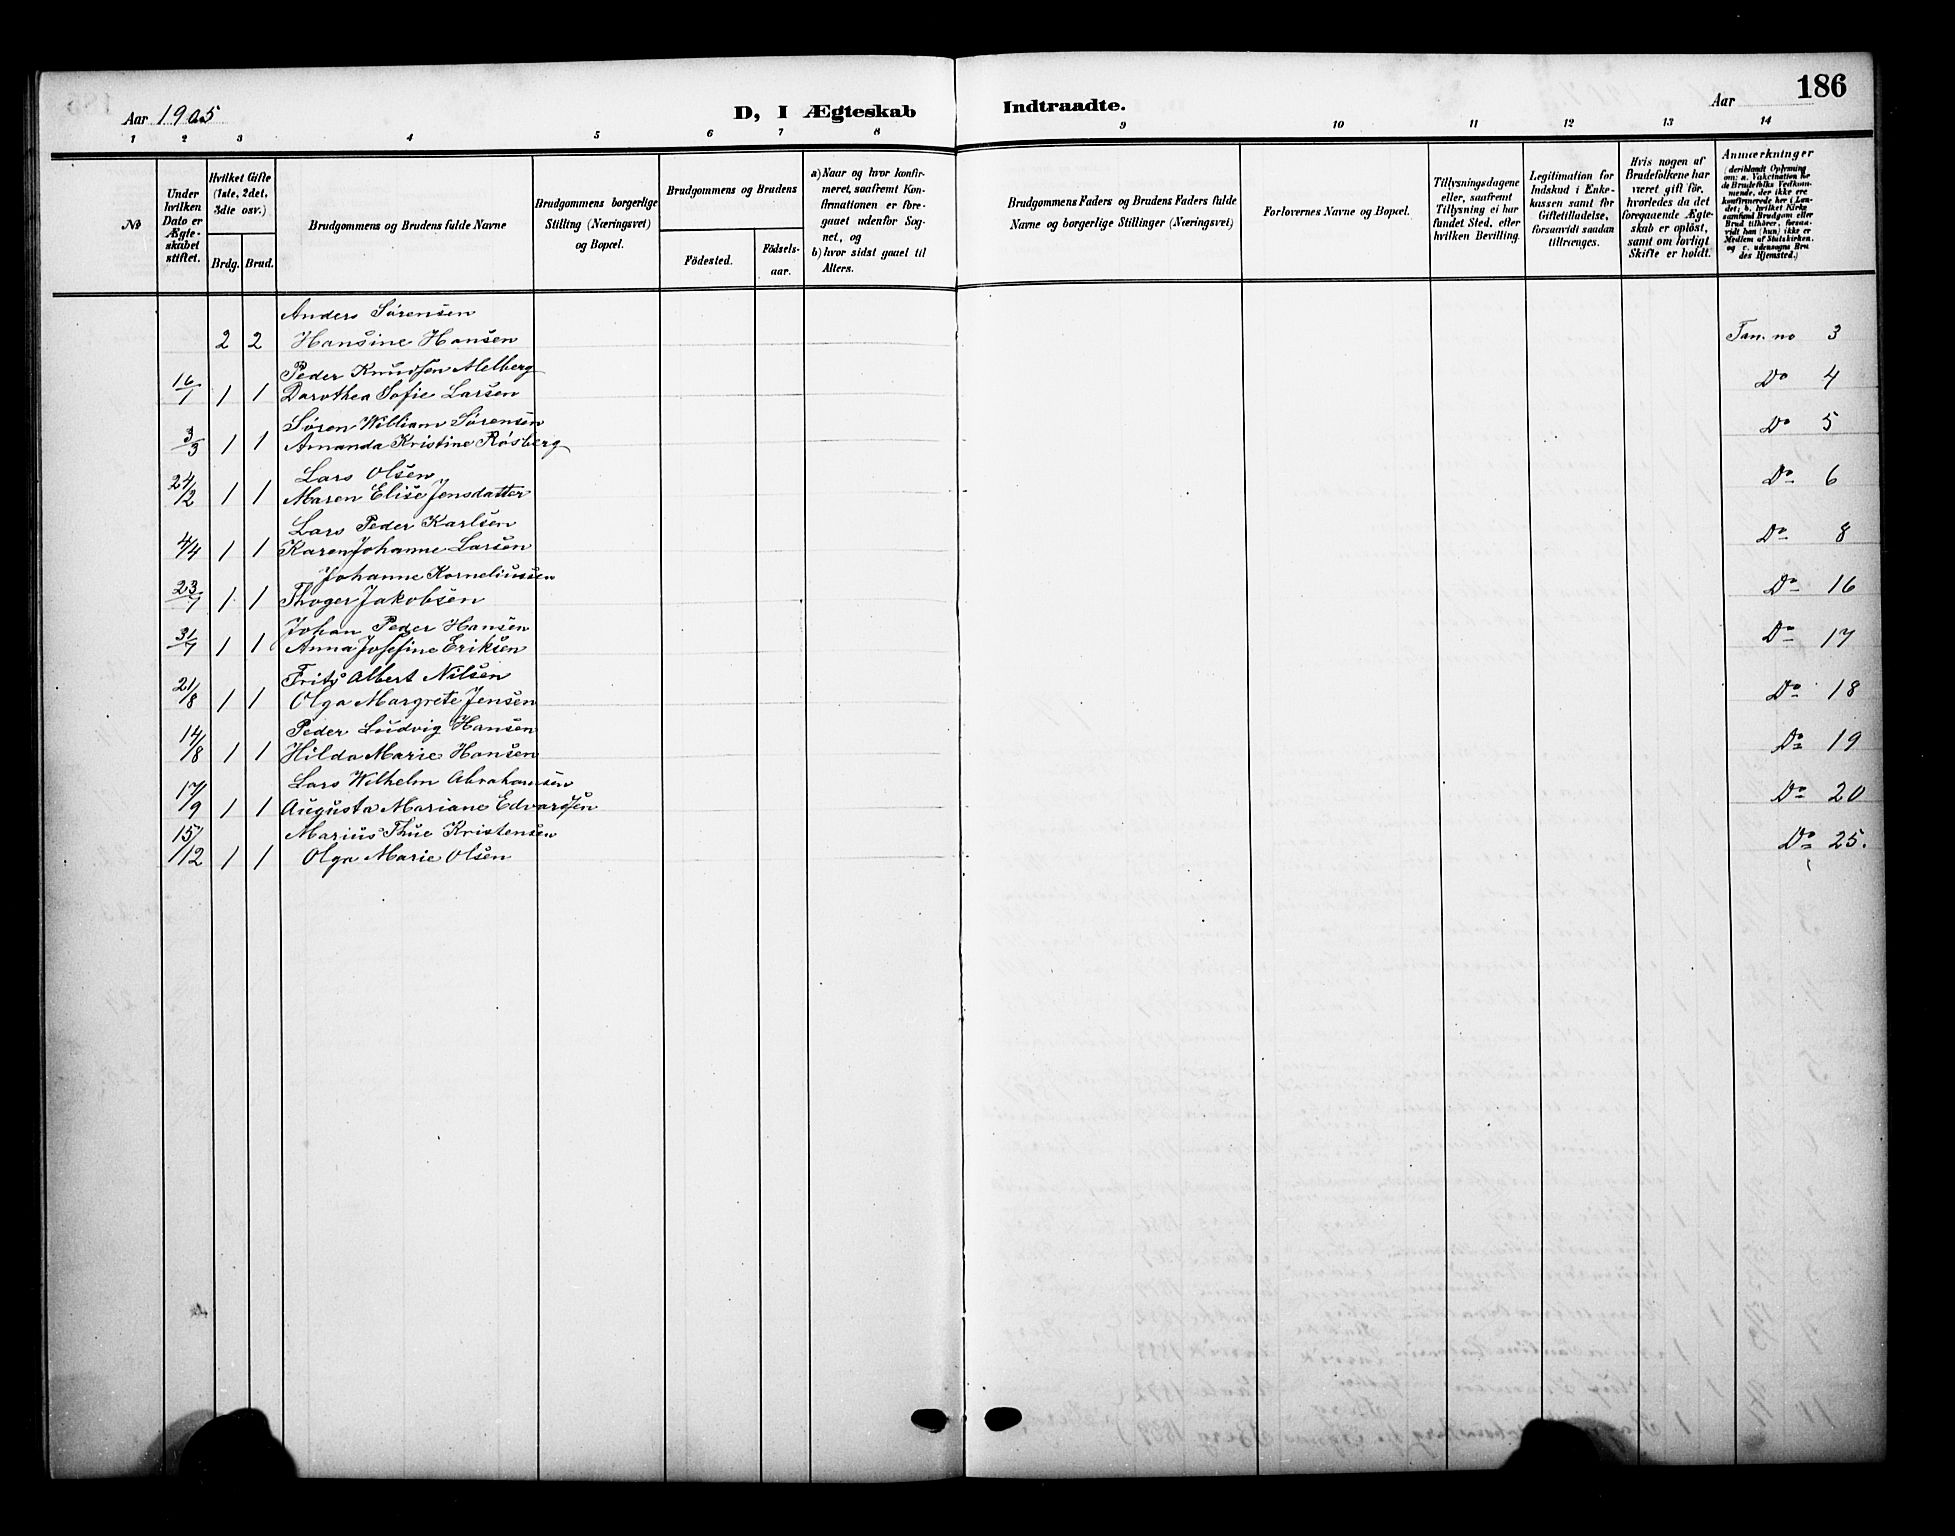 186
Aar 1905 D, I Ægteskab Indtraadte. Aar
1 2 3 4 5 6 7 8 9 10 11 12 13 14
No
Under hvilken Dato er Ægte-skabet stiftet.
Hvilket Gifte (1ste, 2det, 3die osv.)
Brdg. Brud.
Brudgommens og Brudens fulde Navne
Brudgommens borgerlige Stilling (Næringsvei) og Bopæl.
Brudgommens og Brudens
Födested. Födsels-aar.
a) Naar og hvor konfir-meret, saafremt Kon-firmationen er fore-gaaet udenfor Sog-net, og
b) hvor sidst gaaet til Alters.
Brudgommens Faders og Brudens Faders fulde Navne og borgerlige Stillinger (Næringsvei)
Forlovernes Navne og Bopæl.
Tillysningsdagene eller, saafremt Tillysning ei har fundet Sted, efter hvilken Bevilling.
Legitimation for Indskud i Enke-kassen samt for Giftetilladelse, forsaavidt saadan tillrænges.
Hvis nogen af Brudefolkene har været gift för, hvorledes da det foregaaende Ægte-skab er oplöst, samt om lovligt Skifte er holdt.
Anmærkninger (deriblandt Oplysning om: a. Vakcination for de Brudefolks Vedkom-mende, der ikke ere konfirmerede her i Lan-det; b. hvilket Kirke-samfund Brudgom eller Brud tilhörer, forsaa-vidt han (hun) ikke er Medlem af Statskirken, og c. udensogns Bru-des Hjemsted.)
Anders Sørensen
2 2 Hansine Hansen Fan. no 3
Peder Knudsen Melberg
16/1 1 1 Dorothea Sofie Larsen Do 4
Søren William Sørensen
3/3 1 1 Amanda Kristine Røsberg Do 5
Lars Olsen
24/2 1 1 Maren Elise Jensdatter Do 6
Lars Peder Karlsen
4/4 1 1 Karen Johanne Larsen Do 8
Johanne Korneliussen
23/7 1 1 Thoger Jakobsen Do 16
Johan Peder Hansen
31/7 1 1 Anna Josefine Eriksen Do 17
Frits Albert Nilsen
21/8 1 1 Olga Margrete Jensen Do 18
Peder Ludvig Hansen
14/18 1 1 Hilda Marie Hansen Do 19
Lars Wilhelm Abrahamsen
17/9 1 1 Augusta Mariane Edvardsen Do 20
Marius Thue Kristensen
15/12 1 1 Olga Marie Olsen Do 25.